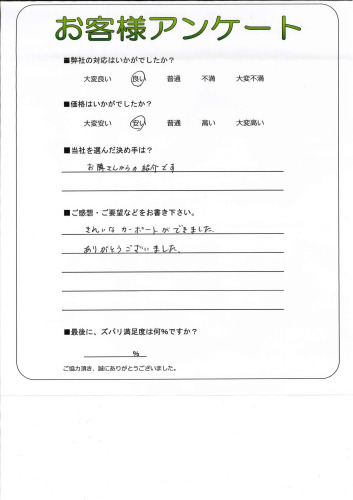 お客様アンケート
■弊社の対応はいかがでしたか?
大変良い 良い 普通 不満 大変不満
■価格はいかがでしたか?
大変安い 安い 普通 高い 大変高い
■当社を選んだ決め手は?
お隣さんからの紹介です
■ご感想・ご要望などをお書き下さい。
きれいなカーポートができました
ありがとうございました。
■最後に、ズバリ満足度は何%ですか?
%
ご協力頂き、誠にありがとうございました。